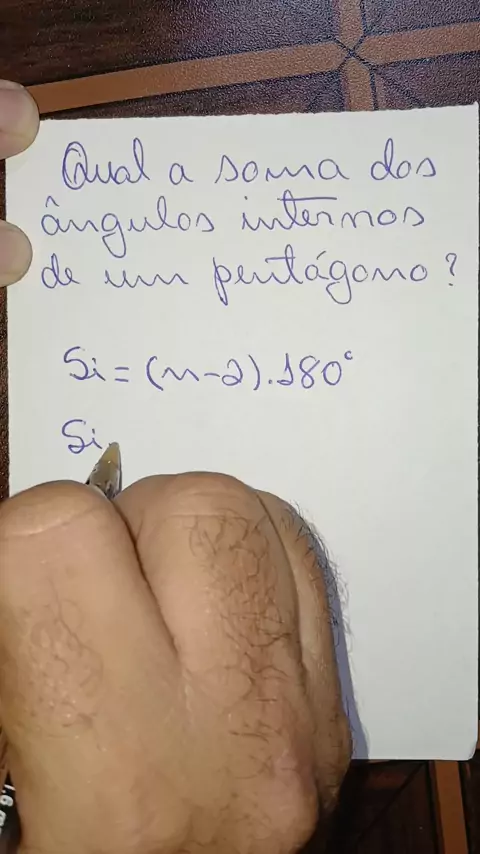 Qual a soma dos
ângulos internos
de um pentágono?
Si = (n-2).180°
Si